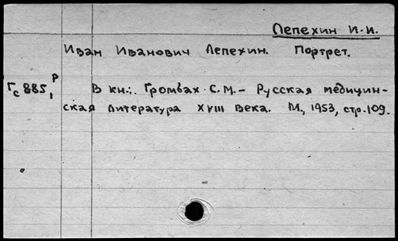 Лепехин И.И.
Иван Иванович Лепехин. Портрет.
Гс 885, Р В кн.: Громбах С.М. – Русская медицин-
ская литература XVIII века. М., 1953, стр. 109.